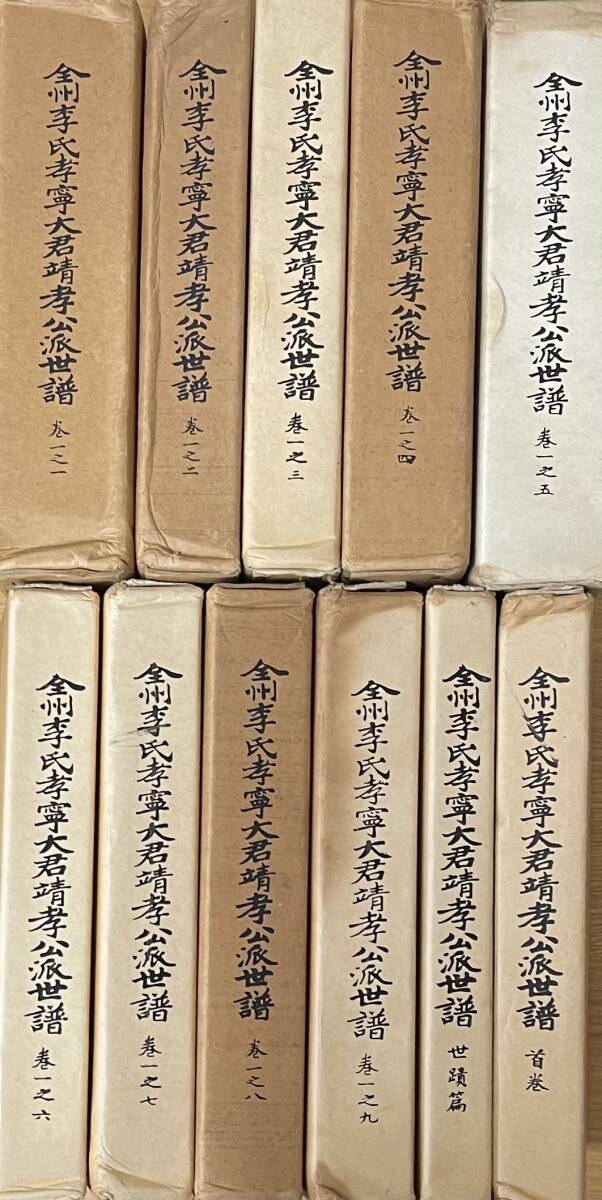 全州李氏孝寧大君靖孝公派世譜
卷一之一
全州李氏孝寧大君靖孝公派世譜
卷一之二
全州李氏孝寧大君靖孝公派世譜
卷一之三
全州李氏孝寧大君靖孝公派世譜
卷一之四
全州李氏孝寧大君靖孝公派世譜
卷一之五
全州李氏孝寧大君靖孝公派世譜
卷一之六
全州李氏孝寧大君靖孝公派世譜
卷一之七
全州李氏孝寧大君靖孝公派世譜
卷一之八
全州李氏孝寧大君靖孝公派世譜
卷一之九
全州李氏孝寧大君靖孝公派世譜
世蹟篇
全州李氏孝寧大君靖孝公派世譜
首卷